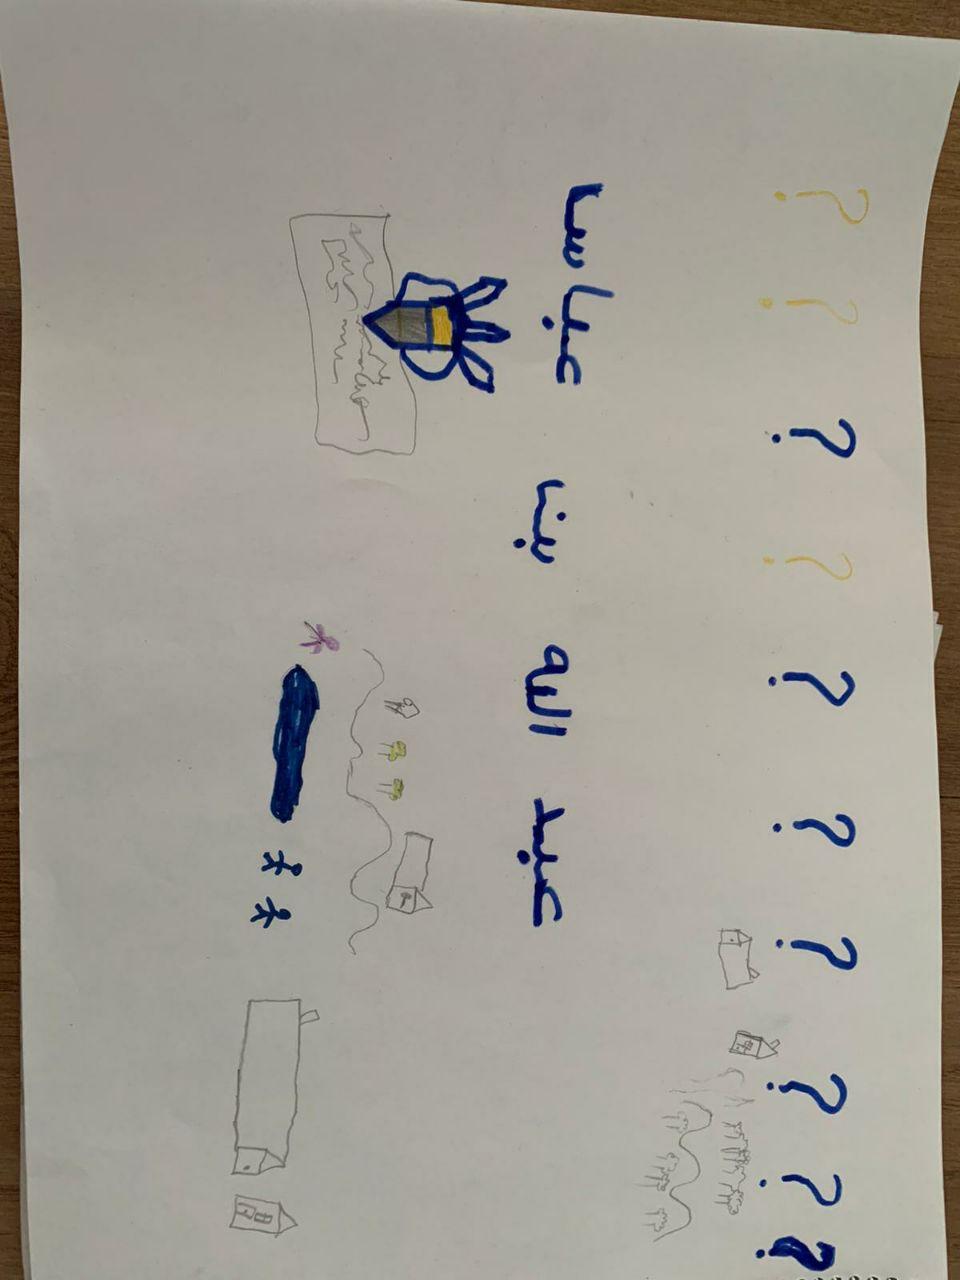 ? ? ? ? ? ? ? ? ? ?
عبد الله بن عباس